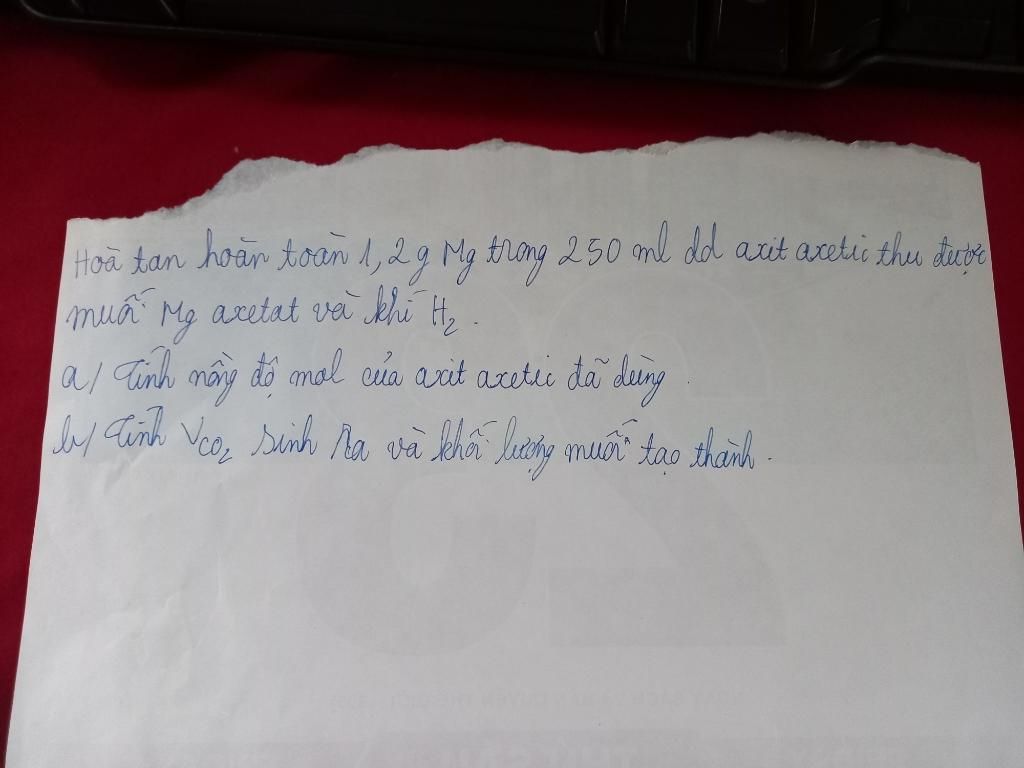 Hoà tan hoàn toàn 1,2g Mg trong 250 ml dd axit axetic thu được
muối Mg axetat và khí H2.
a/ Tính nồng độ mol của axit axetic đã dùng.
b/ Tính VCO2 sinh ra và khối lượng muối tạo thành.